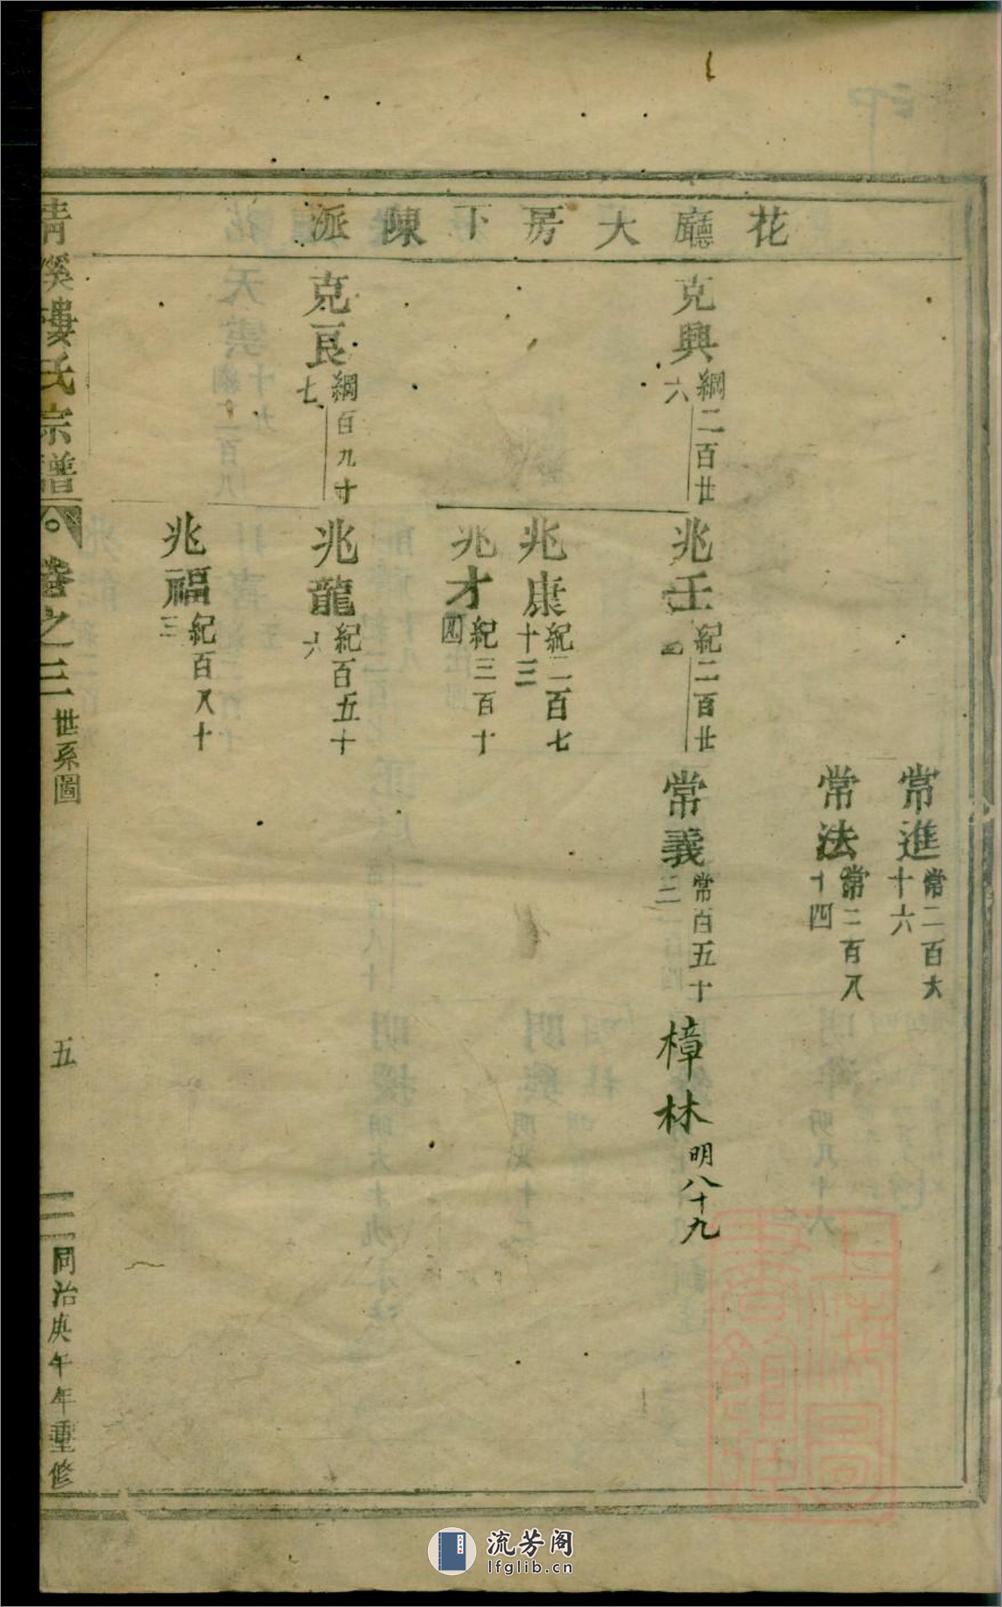 花廳大房下陳派
常進常二百六十六
常法常二百八十四
克興綱二百廿六
兆壬紀二百廿四
常義常百五十三
樟林明八十九
兆康紀二百七十三
兆才紀三百十四
克良綱百九十七
兆龍紀百五十六
兆福紀百八十三
清溪樓氏宗譜
卷之三 世系圖
五
同治庚午年重修
上海圖書館藏
流芳阁
lfglib.cn